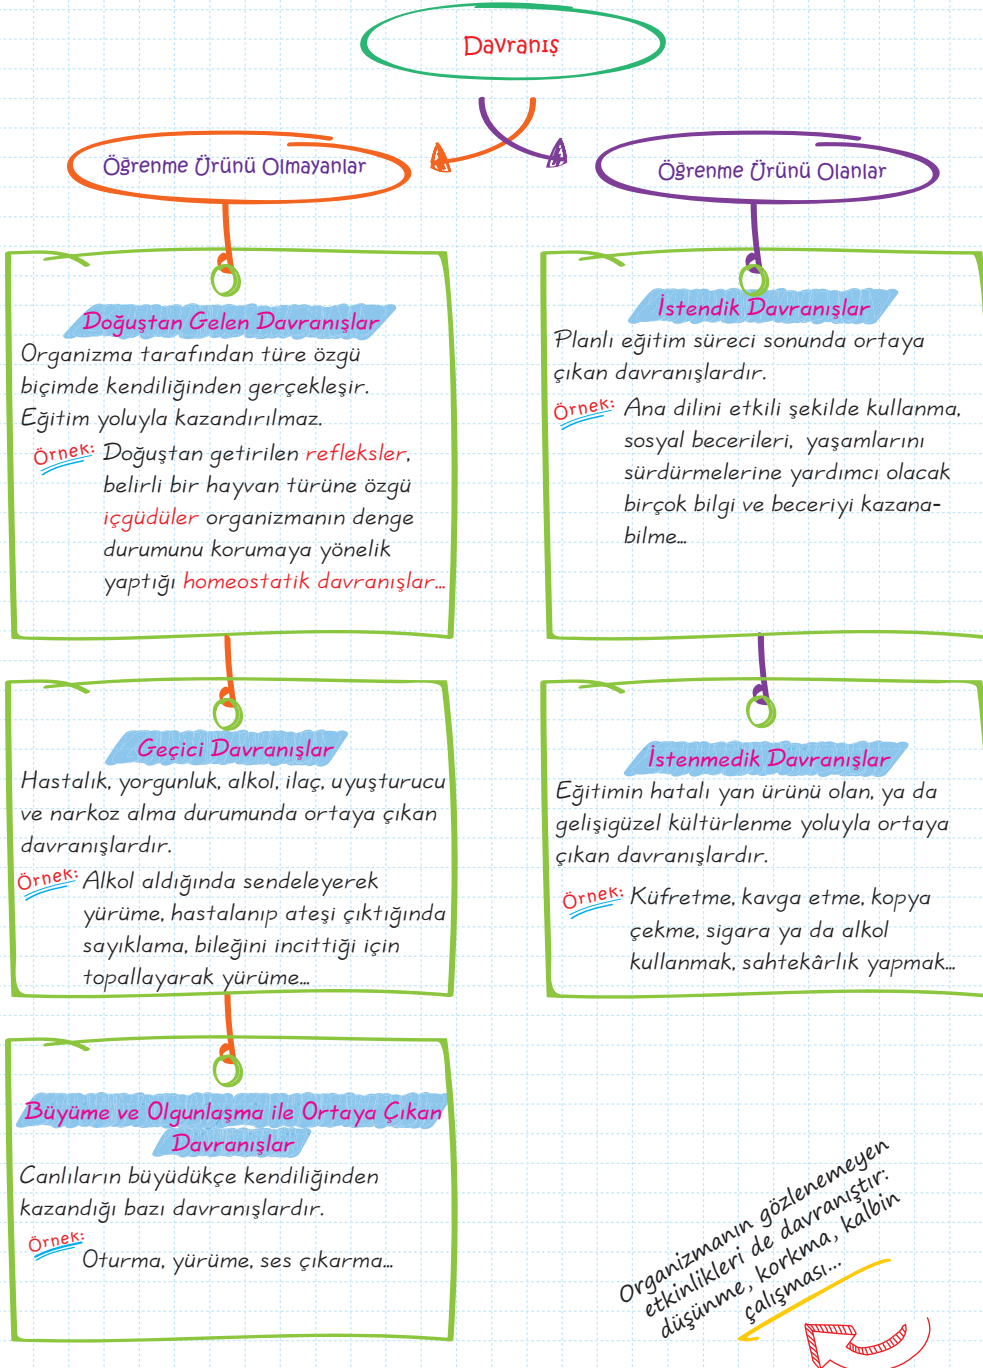 Davranış
Öğrenme Ürünü Olmayanlar
Doğuştan Gelen Davranışlar
Organizma tarafından türe özgü
biçimde kendiliğinden gerçekleşir.
Eğitim yoluyla kazandırılmaz.
Örnek: Doğuştan getirilen refleksler,
belirli bir hayvan türüne özgü
içgüdüler organizmanın denge
durumunu korumaya yönelik
yaptığı homeostatik davranışlar...
Geçici Davranışlar
Hastalık, yorgunluk, alkol, ilaç, uyuşturucu
ve narkoz alma durumunda ortaya çıkan
davranışlardır.
Örnek: Alkol aldığında sendeleyerek
yürüme, hastalanıp ateşi çıktığında
sayıklama, bileğini incittiği için
topallayarak yürüme...
Büyüme ve Olgunlaşma ile Ortaya Çıkan
Davranışlar
Canlıların büyüdükçe kendiliğinden
kazandığı bazı davranışlardır.
Örnek: Oturma, yürüme, ses çıkarma...
Öğrenme Ürünü Olanlar
İstendik Davranışlar
Planlı eğitim süreci sonunda ortaya
çıkan davranışlardır.
Örnek: Ana dilini etkili şekilde kullanma,
sosyal becerileri, yaşamlarını
sürdürmelerine yardımcı olacak
birçok bilgi ve beceriyi kazana-
bilme...
İstenmedik Davranışlar
Eğitimin hatalı yan ürünü olan, ya da
gelişigüzel kültürlenme yoluyla ortaya
çıkan davranışlardır.
Örnek: Küfretme, kavga etme, kopya
çekme, sigara ya da alkol
kullanmak, sahtekârlık yapmak...
Organizmanın gözlenemeyen
etkinlikleri de davranıştır:
düşünme, korkma, kalbin
çalışması...